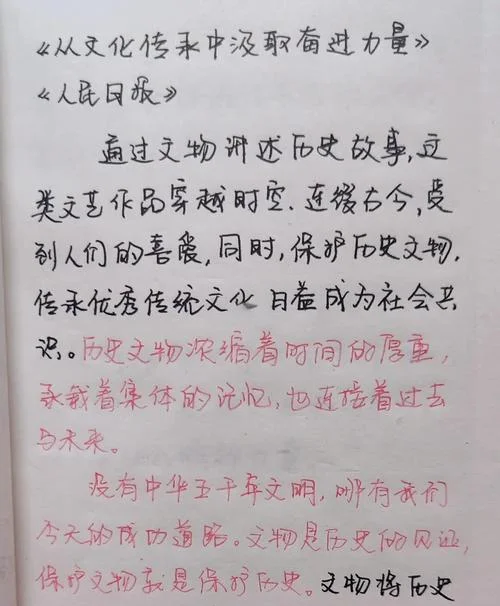 《从文化传承中汲取奋进力量》
《人民日报》
通过文物讲述历史故事,这
类文艺作品穿越时空.连缀古今,受
到人们的喜爱,同时,保护历史文物,
传承优秀传统文化日益成为社会共
识。历史文物浓缩着时间的厚重,
承载着集体的记忆,也连接着过去
与未来。
没有中华五千年文明,哪有我们
今天的成功道路。文物是历史的见证,
保护文物就是保护历史。文物将历史